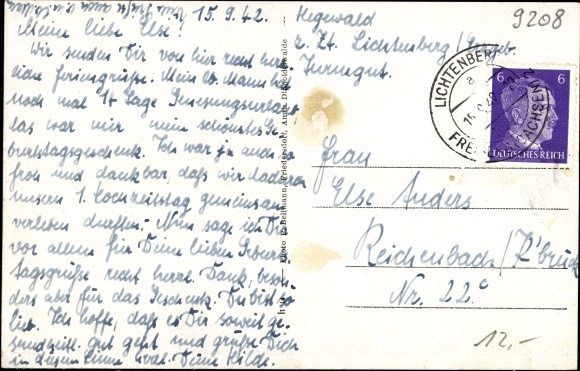 15. 9. 42.
Meine liebe Else!
Wir senden Dir von hier recht herz-
liche Feriengrüße. Mein lb. Mann hat
noch mal 14 Tage Genesungsurlaub
das war mir mein schönstes Ge-
burtstagsgeschenk. Ich war ja auch so
froh und dankbar, daß wir da
unsern 1. Hochzeitstag gemeinsam
verleben durften. Nun sage ich Dir
vor allem für Deine lieben Geburts-
tagsgrüße recht herzl. Dank, beson-
ders aber für das Geschenk. Du bist so
lieb. Ich hoffe, daß es Dir soweit ge-
sundheitl. gut geht und grüße Dich
in diesem Sinne Deine Hilde.
Hegewald
z. Zt. Lichtenberg/Erzgeb.
9208
LICHTENBERG
SACHSEN
6 6
DEUTSCHES REICH
Frau
Else Anders
Reichenbach/
Nr. 22c
12,-